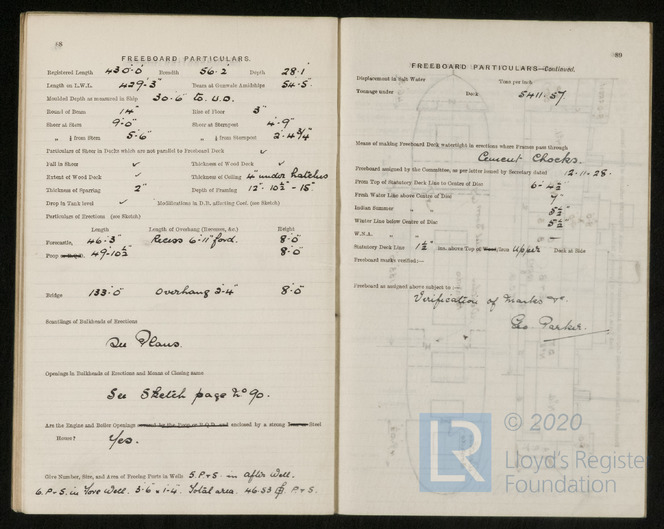 88
FREEBOARD PARTICULARS.
Registered Length 430·0 Breadth 56·2 Depth 28·1
Length on L.W.L. 429·3" Beam at Gunwale Amidships 54·5
Moulded Depth as measured in Ship 30·6" to U.D.
Round of Beam 14" Rise of Floor 3"
Sheer at Stem 9·0" Sheer at Sternpost 4·9"
" ⅛ from Stem 5·6" " ⅛ from Sternpost 2·4¾"
Particulars of Sheer in Decks which are not parallel to Freeboard Deck ✓
Fall in Sheer ✓ Thickness of Wood Deck ✓
Extent of Wood Deck ✓ Thickness of Ceiling 4" under hatches
Thickness of Sparring 2" Depth of Framing 12" · 10½" - 15"
Drop in Tank level ✓ Modifications in D.B. affecting Corr. (see Sketch)
Particulars of Erections (see Sketch)
Length Length of Overhang (Recesses, &c.) Height
Forecastle, 46·3" Recess 6·11" ford. 8·0"
Poop or R.Q.D. 49·10½" 8·0"
Bridge 133·0" Overhang 2·4" 8·0"
Scantlings of Bulkheads of Erections
See Plans.
Openings in Bulkheads of Erections and Means of Closing same
See Sketch page No 90.
Are the Engine and Boiler Openings covered by the Poop or R.Q.D. and enclosed by a strong Iron or Steel
House? Yes.
Give Number, Size, and Area of Freeing Ports in Wells 5. P & S. in after Well.
6. P & S. in Fore Well. 3·6 x 1·4. Total area. 46·53 P & S.
89
FREEBOARD PARTICULARS—Continued.
Displacement in Salt Water Tons per Inch
Tonnage under Deck 5411·57
Means of making Freeboard Deck watertight in erections where Frames pass through
Cement Chocks.
Freeboard assigned by the Committee, as per letter issued by Secretary dated 12·11·28·
From Top of Statutory Deck Line to Centre of Disc 6·4½
Fresh Water Line above Centre of Disc 7"
Indian Summer " " 5½"
Winter Line below Centre of Disc 5½"
W.N.A. " " —
Statutory Deck Line 1½" ins. above Top of Wood, Iron Upper Deck at Side
Freeboard marks verified:—
Freeboard as assigned above subject to :—
Verification of Marks &c.
Geo Parker.
© 2020
LR
Lloyd's Register
Foundation